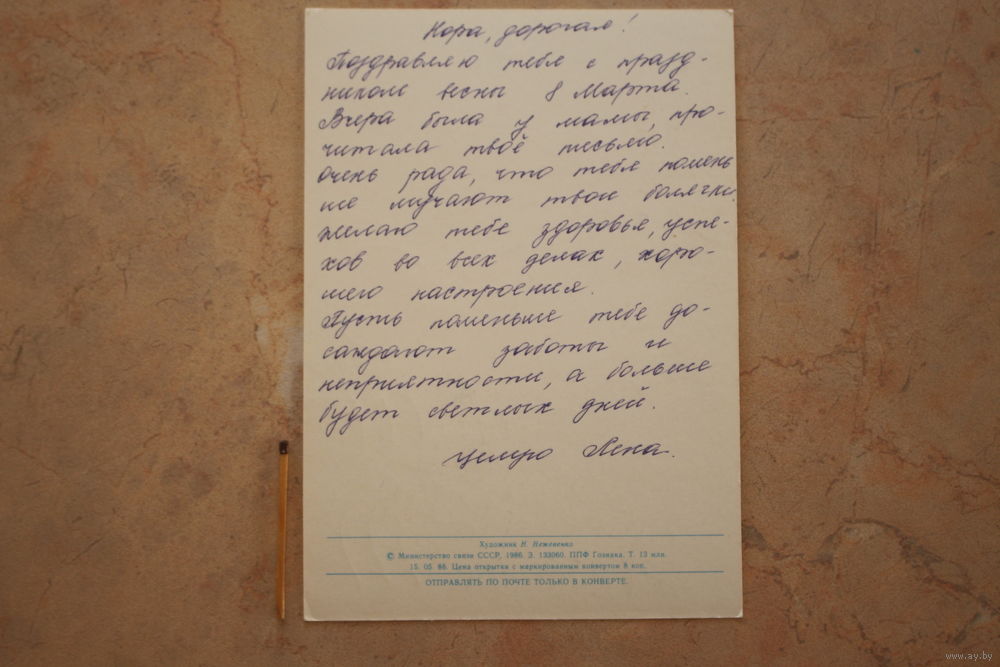 Нора, дорогая!
Поздравляю тебя с празд-
ником весны 8 Марта.
Вчера была у мамы, про-
читала твоё письмо.
очень рада, что тебя помень
ше мучают твои болячки.
желаю тебе здоровья, успе-
хов во всех делах, хоро-
шего настроения.
Пусть поменьше тебе до-
саждают заботы и
неприятности, а больше
будет светлых дней.
целую Лена.
Художник Н. Нежененко
© Министерство связи СССР, 1986. З. 133060. ППФ Гознака. Т. 13 млн.
15. 05. 86. Цена открытки с маркированным конвертом 8 коп.
ОТПРАВЛЯТЬ ПО ПОЧТЕ ТОЛЬКО В КОНВЕРТЕ.
www.ay.by